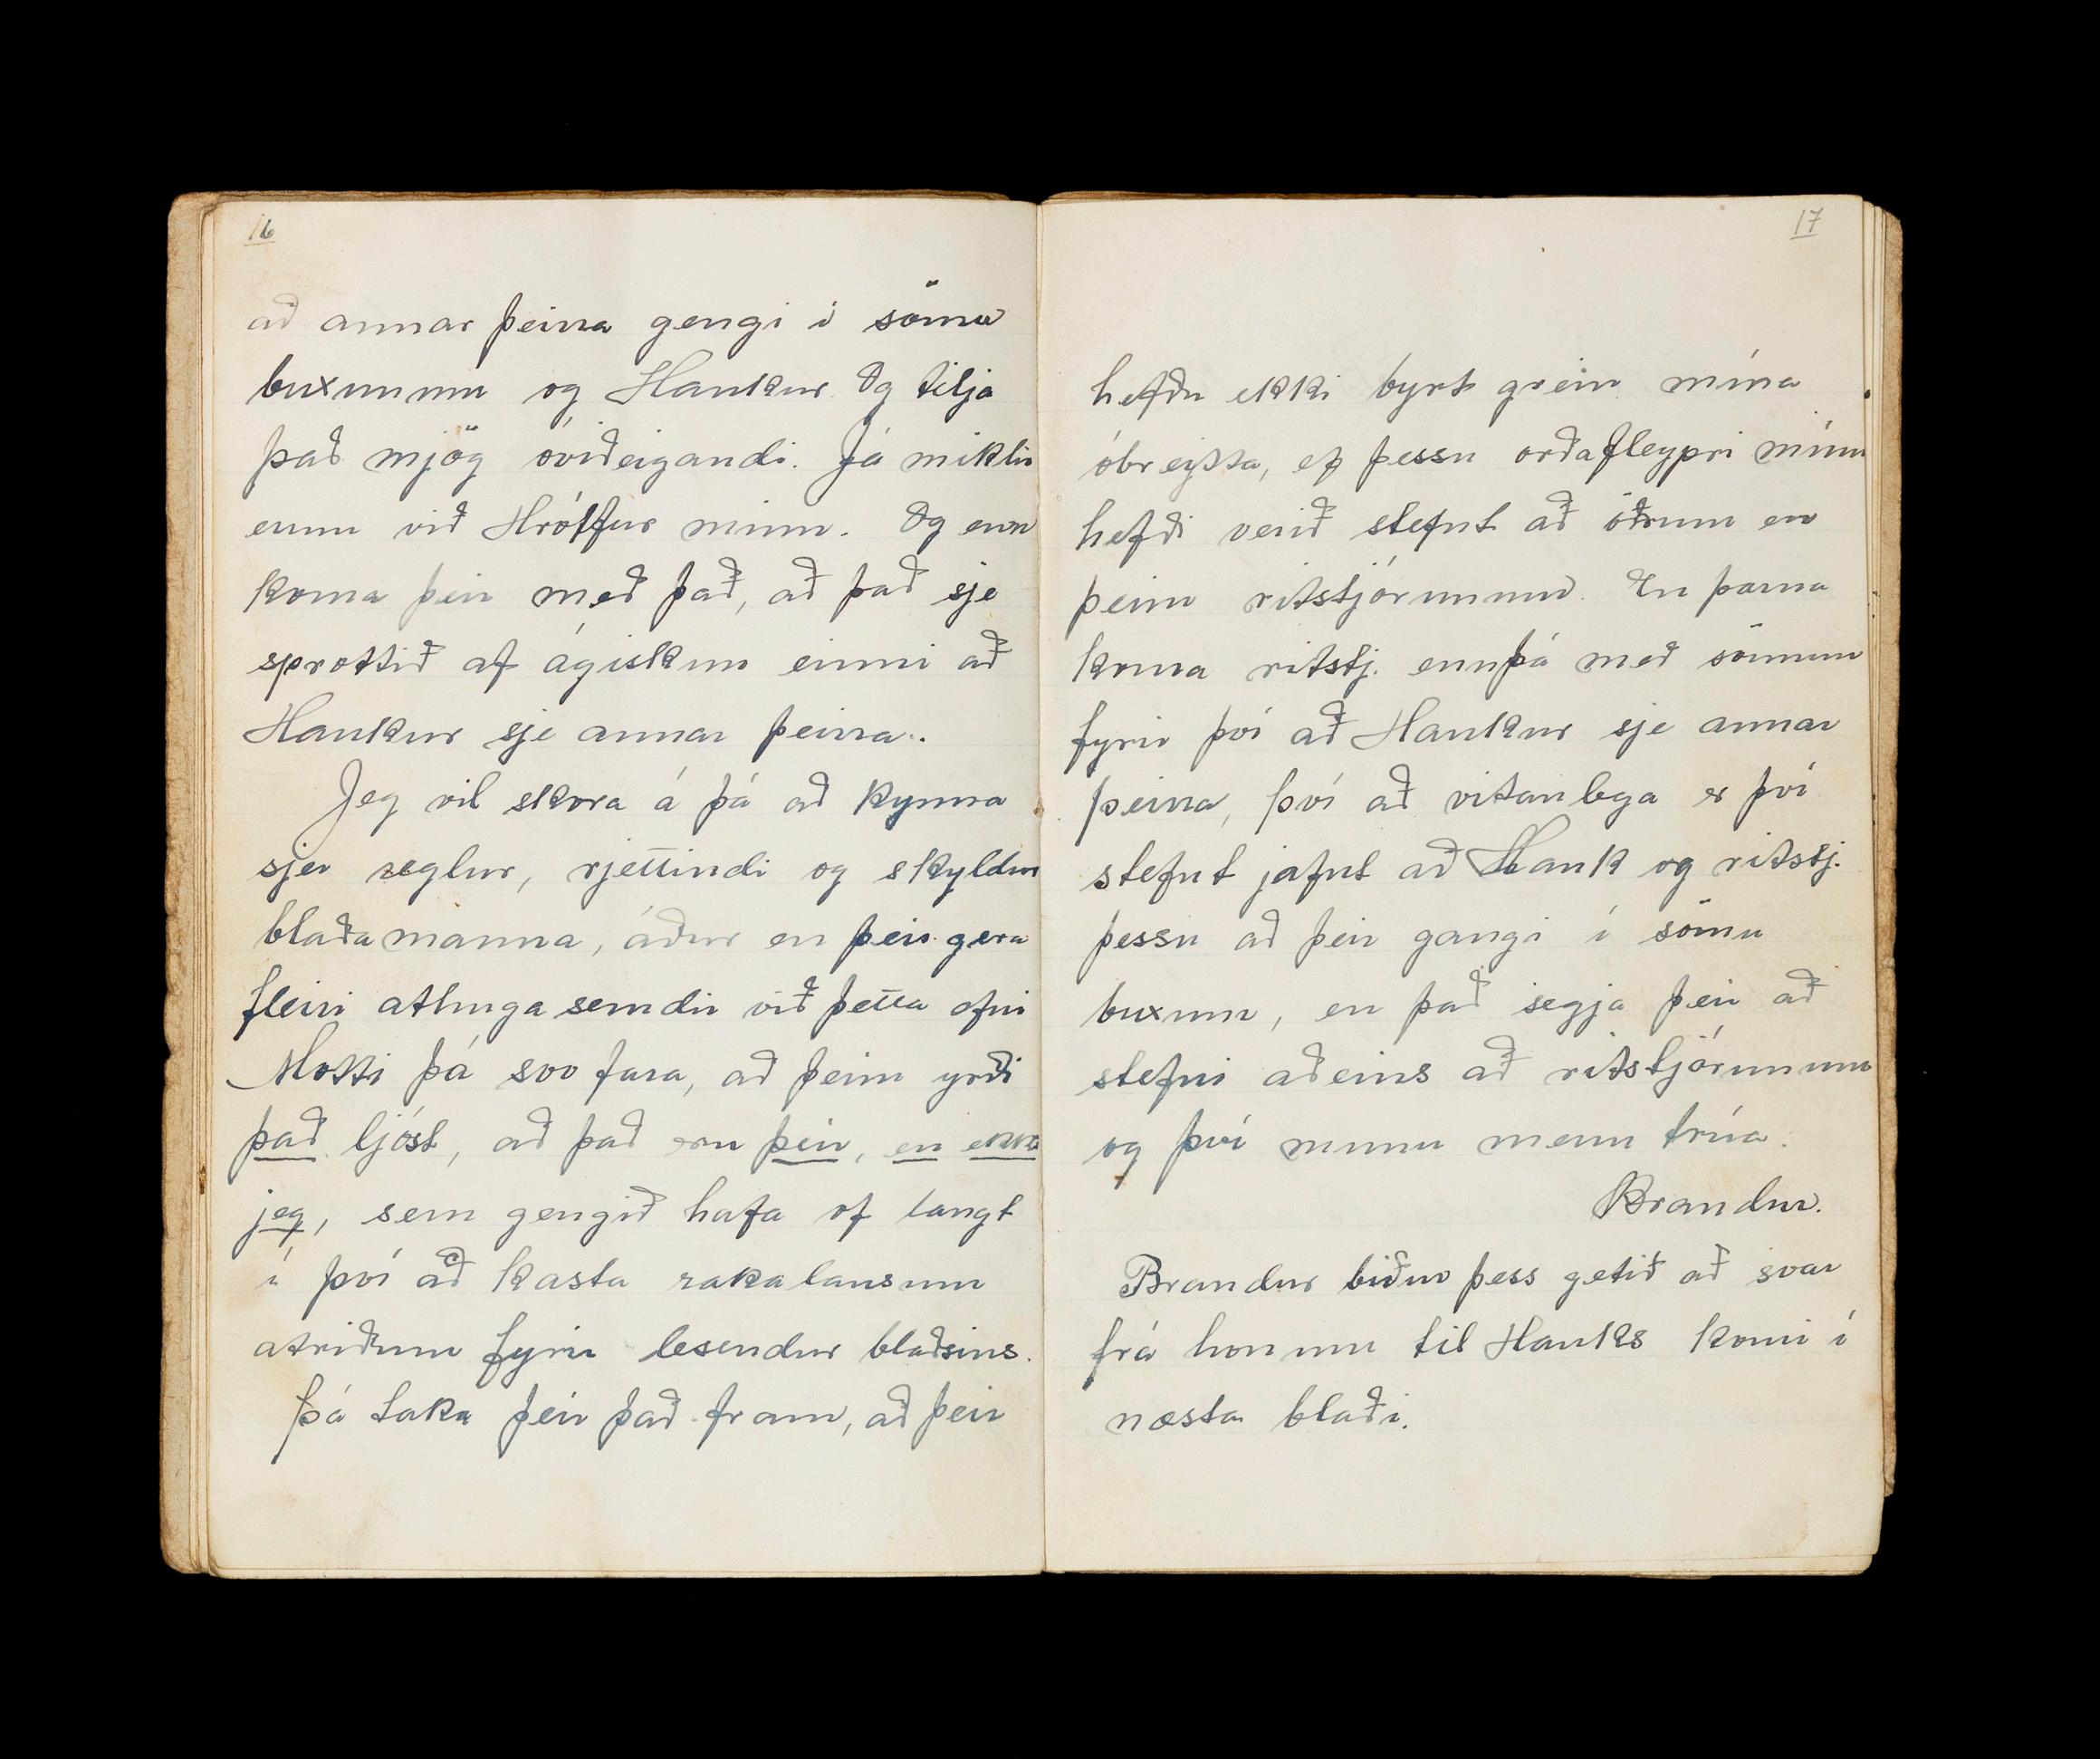 16
að annar þeirra gengi í sömu
buxunum og Haukur. Og tilja
það mjög óviðeigandi. Já miklir
erum við Hrólfur minn. Og enn
koma þeir með það, að það sje
sprottið af ágiskun einni að
Haukur sje annar þeirra.
Jeg vil skora á þá að kynna
sjer reglur, rjettindi og skyldur
blaðamanna, áður en þeir gera
fleiri athugasemdir við þetta efni
Mætti þá svo fara, að þeim yrði
það ljóst, að það eru þeir, en ekki
jeg, sem gengið hafa of langt
í því að kasta rakalausum
atriðum fyrir lesendur blaðsins.
Þá taka þeir það fram, að þeir
17
hefðu ekki byrt grein mína
óbreytta, ef þessu orðafleypri mínu
hefði verið stefnt að öðrum en
þeim ritstjórunum. En þarna
koma ritstj. ennþá með sönnun
fyrir því að Haukur sje annar
þeirra, því að vitanlega er því
stefnt jafnt að Hauk og ritstj.
þessu að þeir gangi í sömu
buxum, en það segja þeir að
stefni aðeins að ritstjórunum
og því munu menn trúa.
Brandur.
Brandur biður þess getið að svar
frá honum til Hauks komi í
næsta blaði.